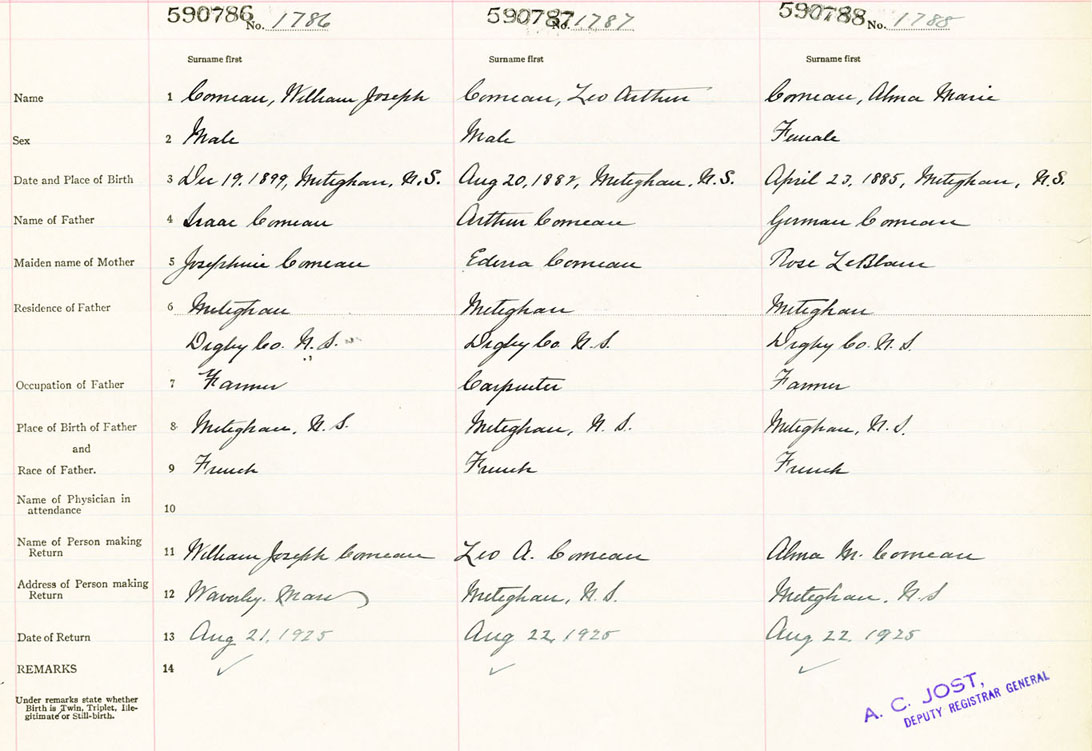 590786 No. 1786 590787 No. 1787 590788 No. 1788
Surname first Surname first Surname first
Name 1 Comeau, William Joseph Comeau, Leo Arthur Comeau, Alma Marie
Sex 2 Male Male Female
Date and Place of Birth 3 Dec 19, 1899, Meteghan, N.S. Aug 20, Meteghan, N.S. April 23, 1885, Meteghan, N.S.
Name of Father 4 Isaac Comeau Arthur Comeau German Comeau
Maiden name of Mother 5 Josephine Comeau Edena Comeau Rose LeBlanc
Residence of Father 6 Meteghan Meteghan Meteghan
Digby Co. N.S. Digby Co. N.S. Digby Co. N.S.
Occupation of Father 7 Farmer Carpenter Farmer
Place of Birth of Father 8 Meteghan, N.S. Meteghan, N.S. Meteghan, N.S.
and
Race of Father. 9 French French French
Name of Physician in
attendance 10
Name of Person making
Return 11 William Joseph Comeau Leo A. Comeau Alma M. Comeau
Address of Person making
Return 12 Waverley. Mass Meteghan, N.S. Meteghan, N.S
Date of Return 13 Aug 21, 1925 Aug 22, 1925 Aug 22, 1925
REMARKS 14
Under remarks state whether
Birth is Twin, Triplet, Ille-
gitimate or Still-birth.
A. C. JOST,
DEPUTY REGISTRAR GENERAL